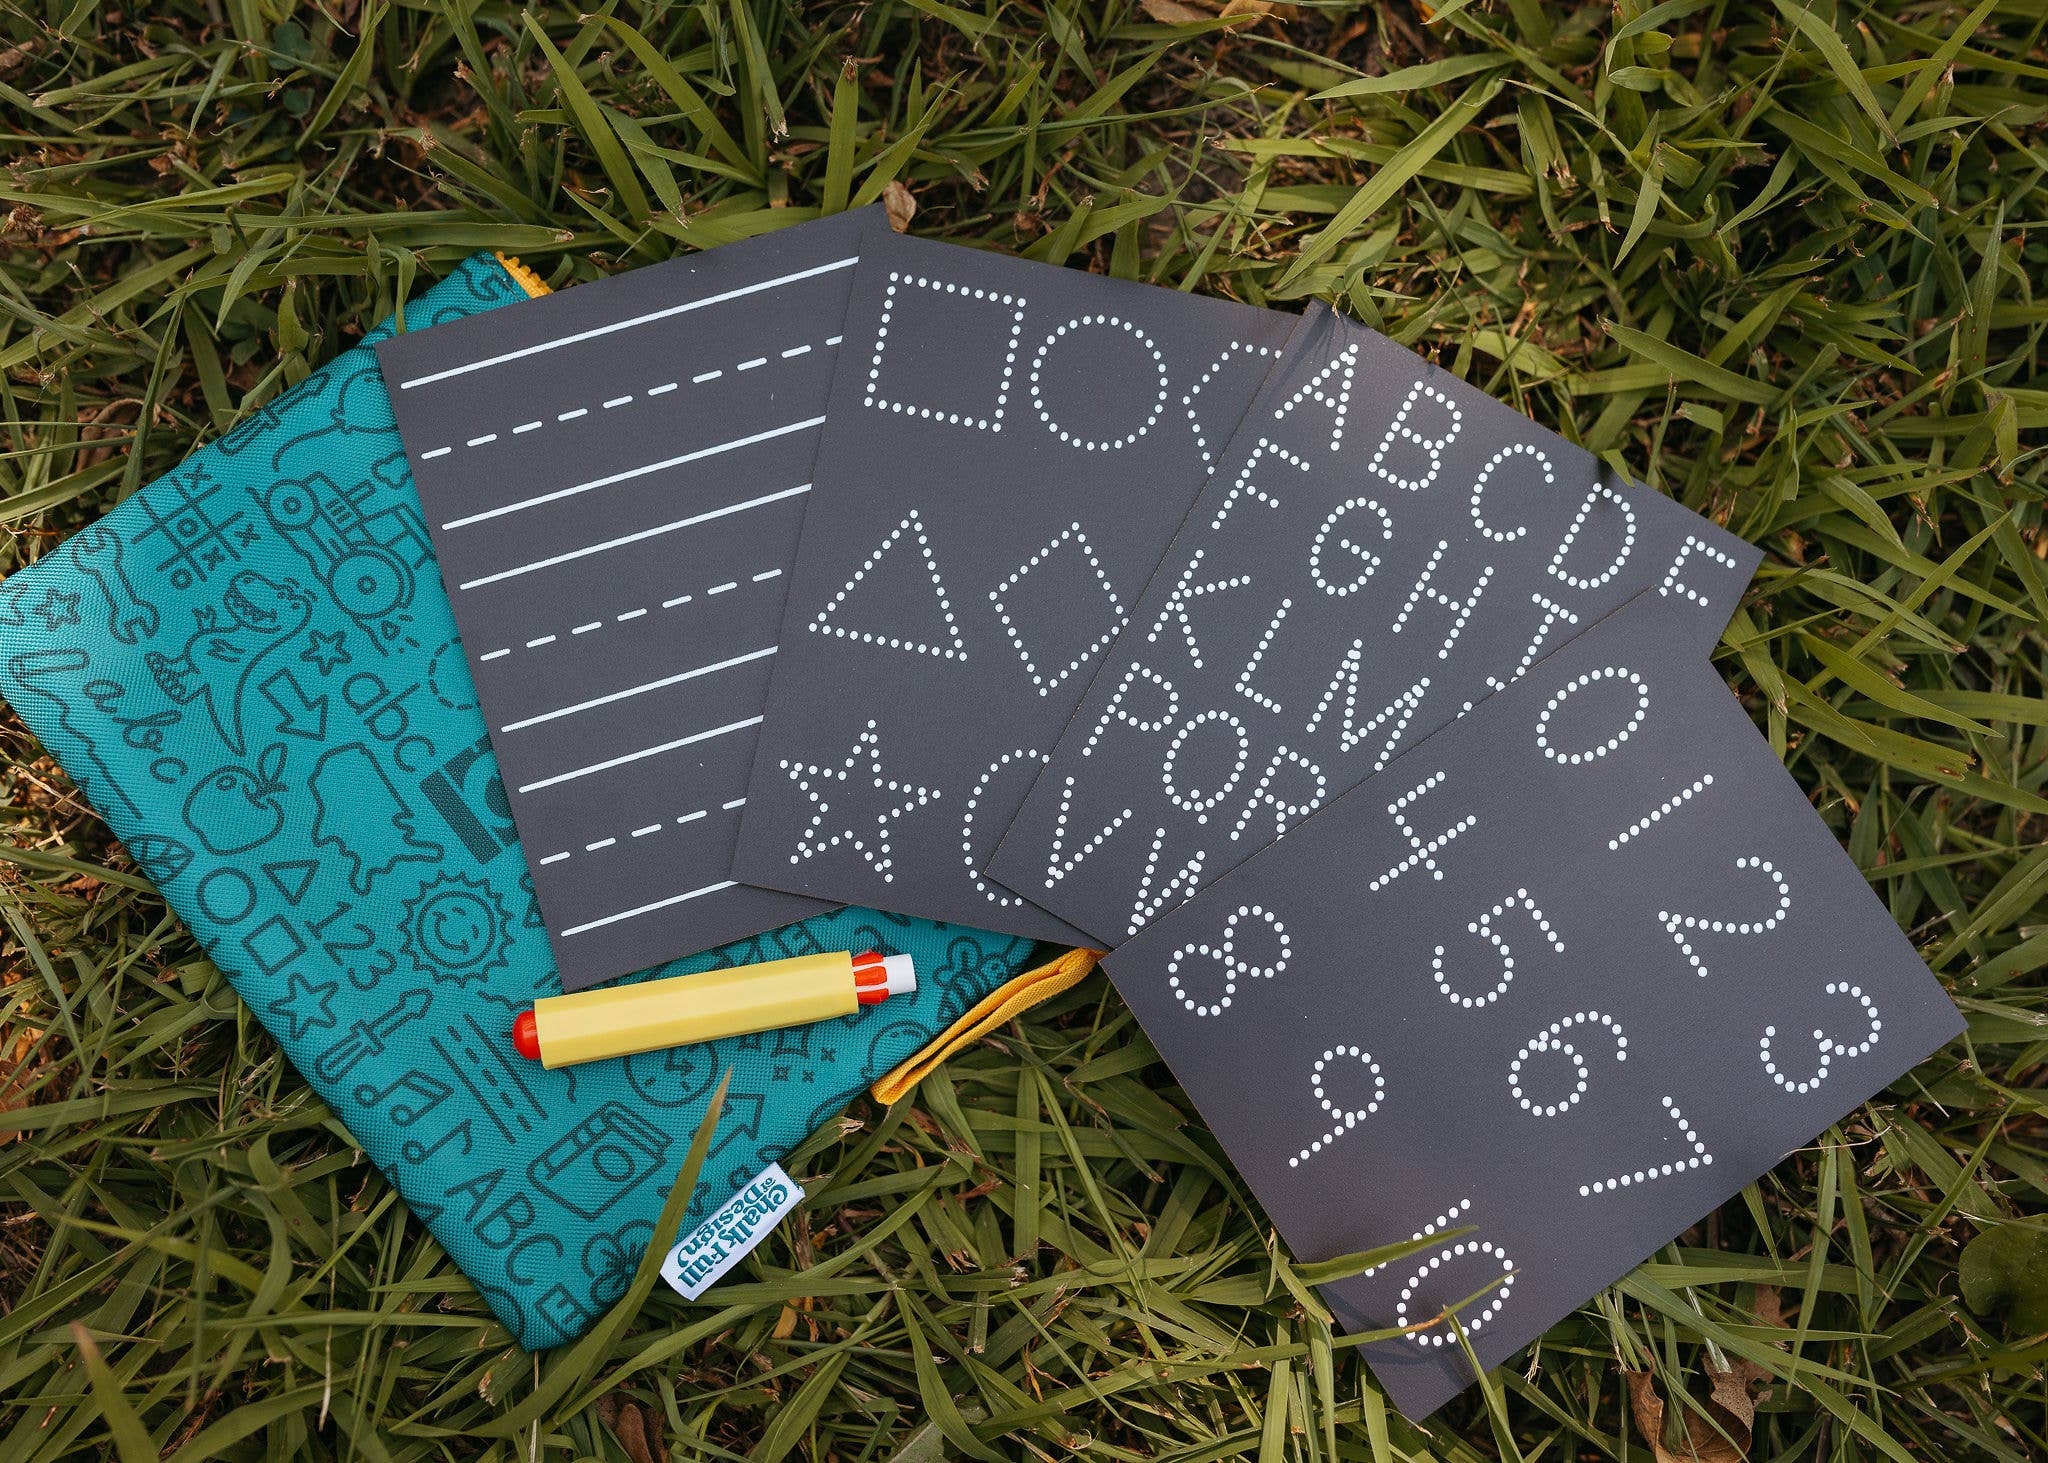 abc
abc
123
ABC
Chalk Full
of Design
A B C D E
F G H
K L M
P Q R
V W
0 1 2 3
4 5 6 7
8 9 10